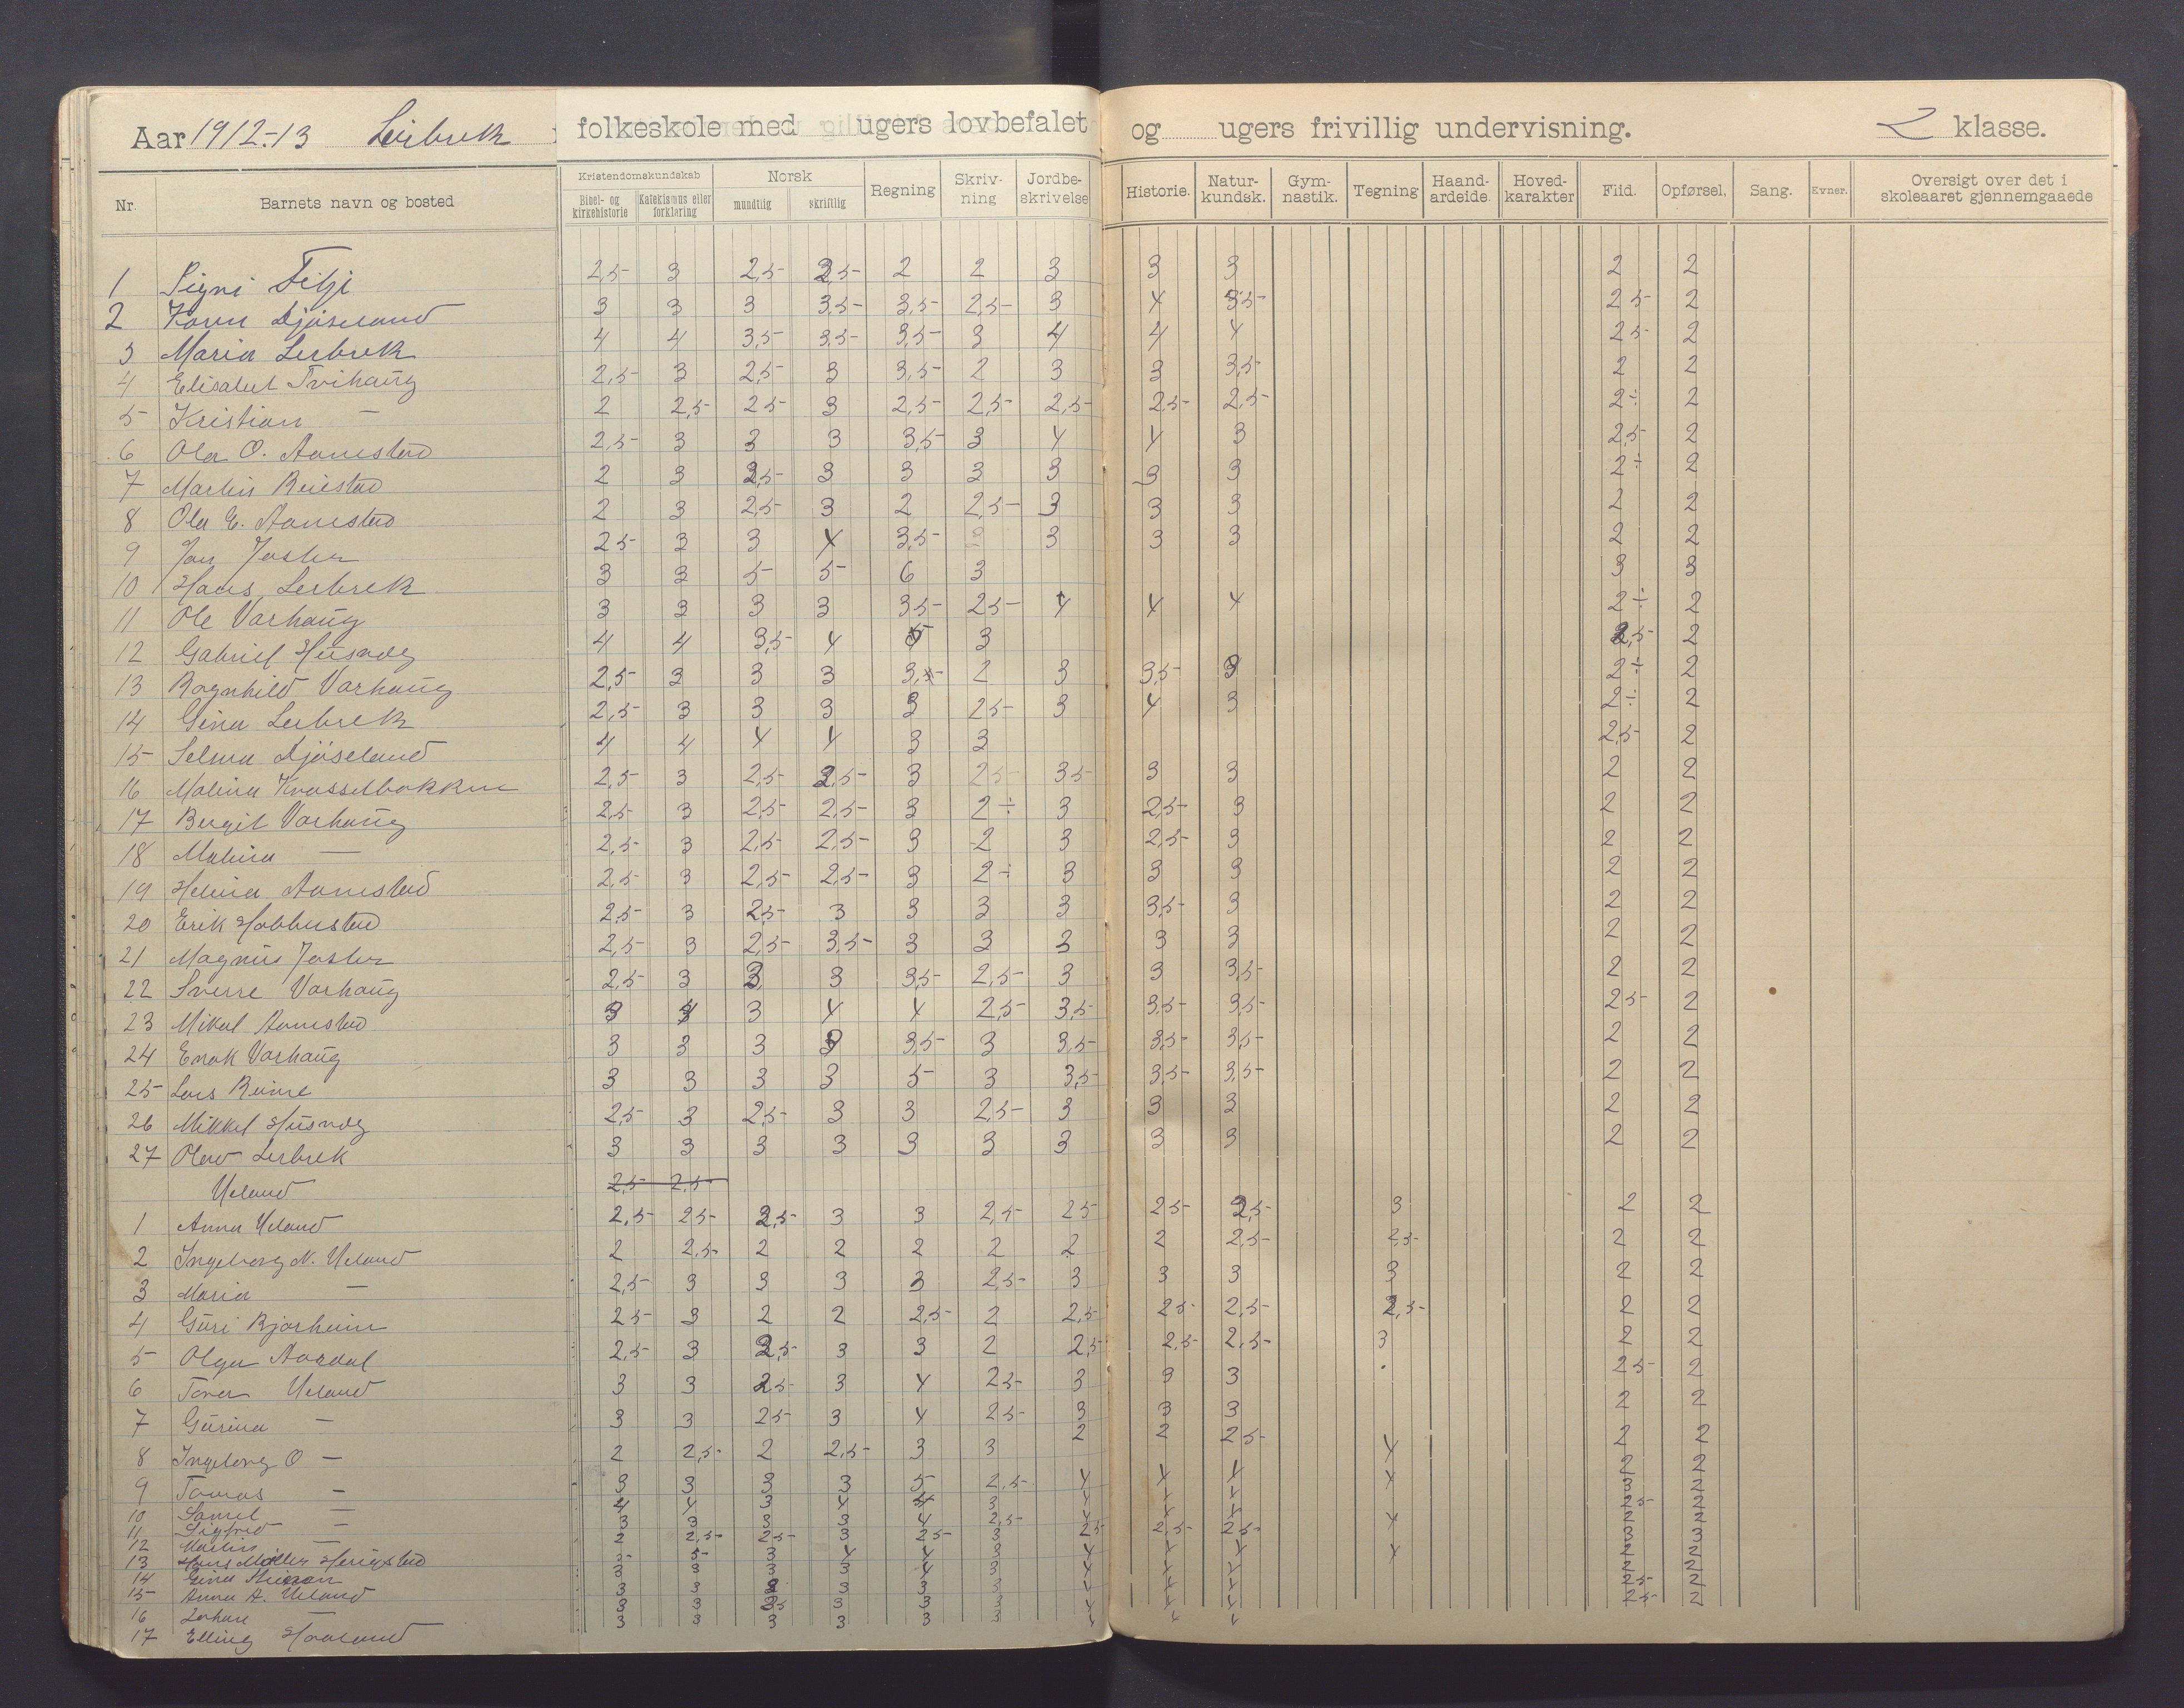 Aar 1912-13 Leirbrek folkeskole med ugers lovbefalet og ugers frivillig undervisning. 2 klasse.
Kristendomskundskab Norsk
Nr. Barnets navn og bosted Bibel- og kirkehistorie Katekismus eller forklaring mundtlig skriftlig Regning Skrivning Jordbeskrivelse Historie. Naturkundsk. Gymnastik. Tegning Haandarbeide. Hovedkarakter Flid. Opførsel. Sang. Evner. Oversigt over det i skoleaaret gjennemgaaede
1 Signi 2,5 3 2,5 2,5 2 2 3 3 3 2 2
2 Karen 3 3 3 3,5 3,5 2,5 3 4 3,5 2 5 2
3 Maria Lerbrek 4 4 3,5 3,5 3,5 3 4 4 4 2 5 2
4 Elisabet Tvihaug 2,5 3 2,5 3 3,5 2 3 3 3,5 2 2
5 Kristian — 2 2,5 2 5 3 2,5 2,5 2,5 2,5 2,5 2÷ 2
6 Ola O. Aanestad 2,5 3 3 3 3,5 3 4 4 3 2,5 2
7 Martin Reiestad 2 3 2,5 3 3 3 3 3 3 2÷ 2
8 Ola E. Aanestad 2 3 2,5 3 2 2,5 3 3 3 2 2
9 Jan 2 5 3 3 4 3,5 3 3 3 2 2
10 Hans Lerbrek 3 3 5 5 6 3 3 3
11 Ole Varhaug 3 3 3 3 3 5 2 5 4 4 4 2÷ 2
12 Gabriel Husvæg 4 4 3,5 4 5 3 2,5 2
13 Ragnhild Varhaug 2,5 3 3 3 2 3 3,5 3 2÷ 2
14 Gina Lerbrek 2,5 3 3 3 3 2 5 3 4 3 2÷ 2
15 Selma 4 4 4 4 3 3 2,5 2
16 Malina 2,5 3 2,5 2,5 3 2 5 3 5 3 3 2 2
17 Bergit Varhaug 2,5 3 2,5 2,5 3 2÷ 3 2,5 3 2 2
18 Malina — 2,5 3 2,5 2,5 3 2 3 2,5 3 2 2
19 Helena Aanestad 2,5 3 2,5 2,5 3 2÷ 3 3 3 2 2
20 Erik 2,5 3 2,5 3 3 3 3 3,5 3 2 2
21 Magnus 2,5 3 2,5 3,5 3 3 3 3 3 2 2
22 Sverre Varhaug 2,5 3 3 3 3,5 2,5 3 3 3,5 2 2
23 Mikal Aanestad 3 4 3 4 4 2,5 3,5 3,5 3,5 2 5 2
24 Enok Varhaug 3 3 3 3 3,5 3 3,5 3,5 3,5 2 2
25 Lars Reime 3 3 3 3 5 3 3,5 3,5 3,5 2 2
26 Mikkel Husvæg 2,5 3 2,5 3 3 2,5 3 3 3 2 2
27 Olav Lerbrek 3 3 3 3 3 3 3 3 3 2 2
Ueland 2,5 2,5
1 Anna Ueland 2,5 2 5 2,5 3 3 2,5 2 5 2 5 2,5 3 2 2
2 Ingeborg N. Ueland 2 2,5 2 2 2 2 2 2 2,5 2,5 2 2
3 Maria — 2,5 3 3 3 3 2,5 3 3 3 3 2 2
4 Guri Bjørheim 2 5 3 2 2 2,5 2 2,5 2 5 2,5 2,5 2 2
5 Olga Aardal 2,5 3 2,5 3 3 2 2,5 2,5 2,5 3 2 2
6 Ueland 3 3 2,5 3 4 2 5 3 3 3 2 5 2
7 Gurina — 3 3 2 5 3 4 2 5 3 3 3 2 2
8 Ingeborg O — 2 2,5 2 2,5 3 3 2 2 2 5 4 2 2
9 Tomas — 3 3 3 3 5 2,5 4 4 4 4 2 2
10 — 4 4 3 4 4 3
11 Sigfrid — 3 3 3 3 4 2,5
12 Martin — 2 2,5 2 5 3 2 5 3 2 5 2,5 2 5
13 Hans Møller
14 Gina
15 Anna A. Ueland
16 Johan
17 Elling Haaland 3 3 3 3 3 3 4 4 4